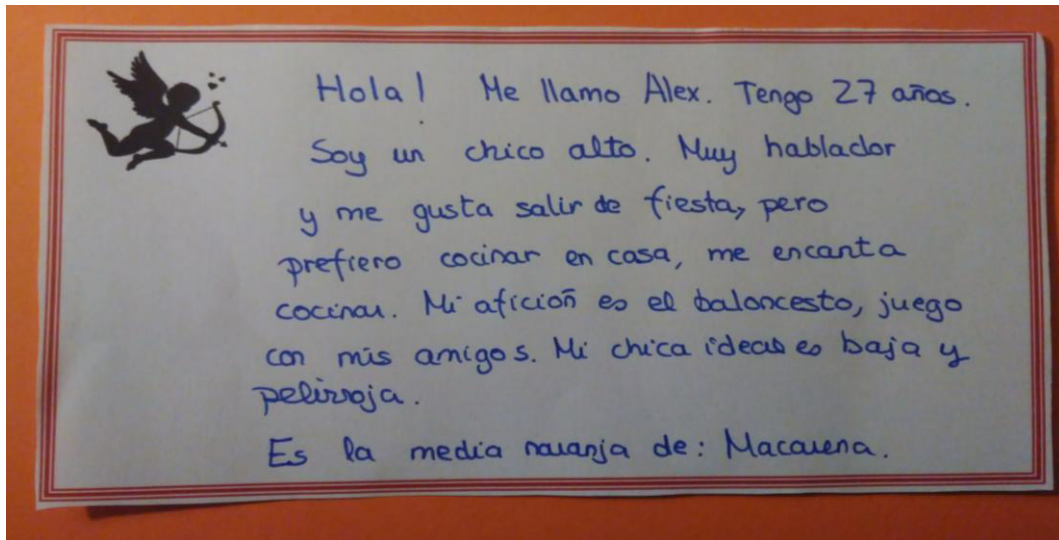 Hola! Me llamo Alex. Tengo 27 años.
Soy un chico alto. Muy hablador
y me gusta salir de fiesta, pero
prefiero cocinar en casa, me encanta
cocinar. Mi afición es el baloncesto, juego
con mis amigos. Mi chica ideal es baja y
pelirroja.
Es la media naranja de: Macarena.